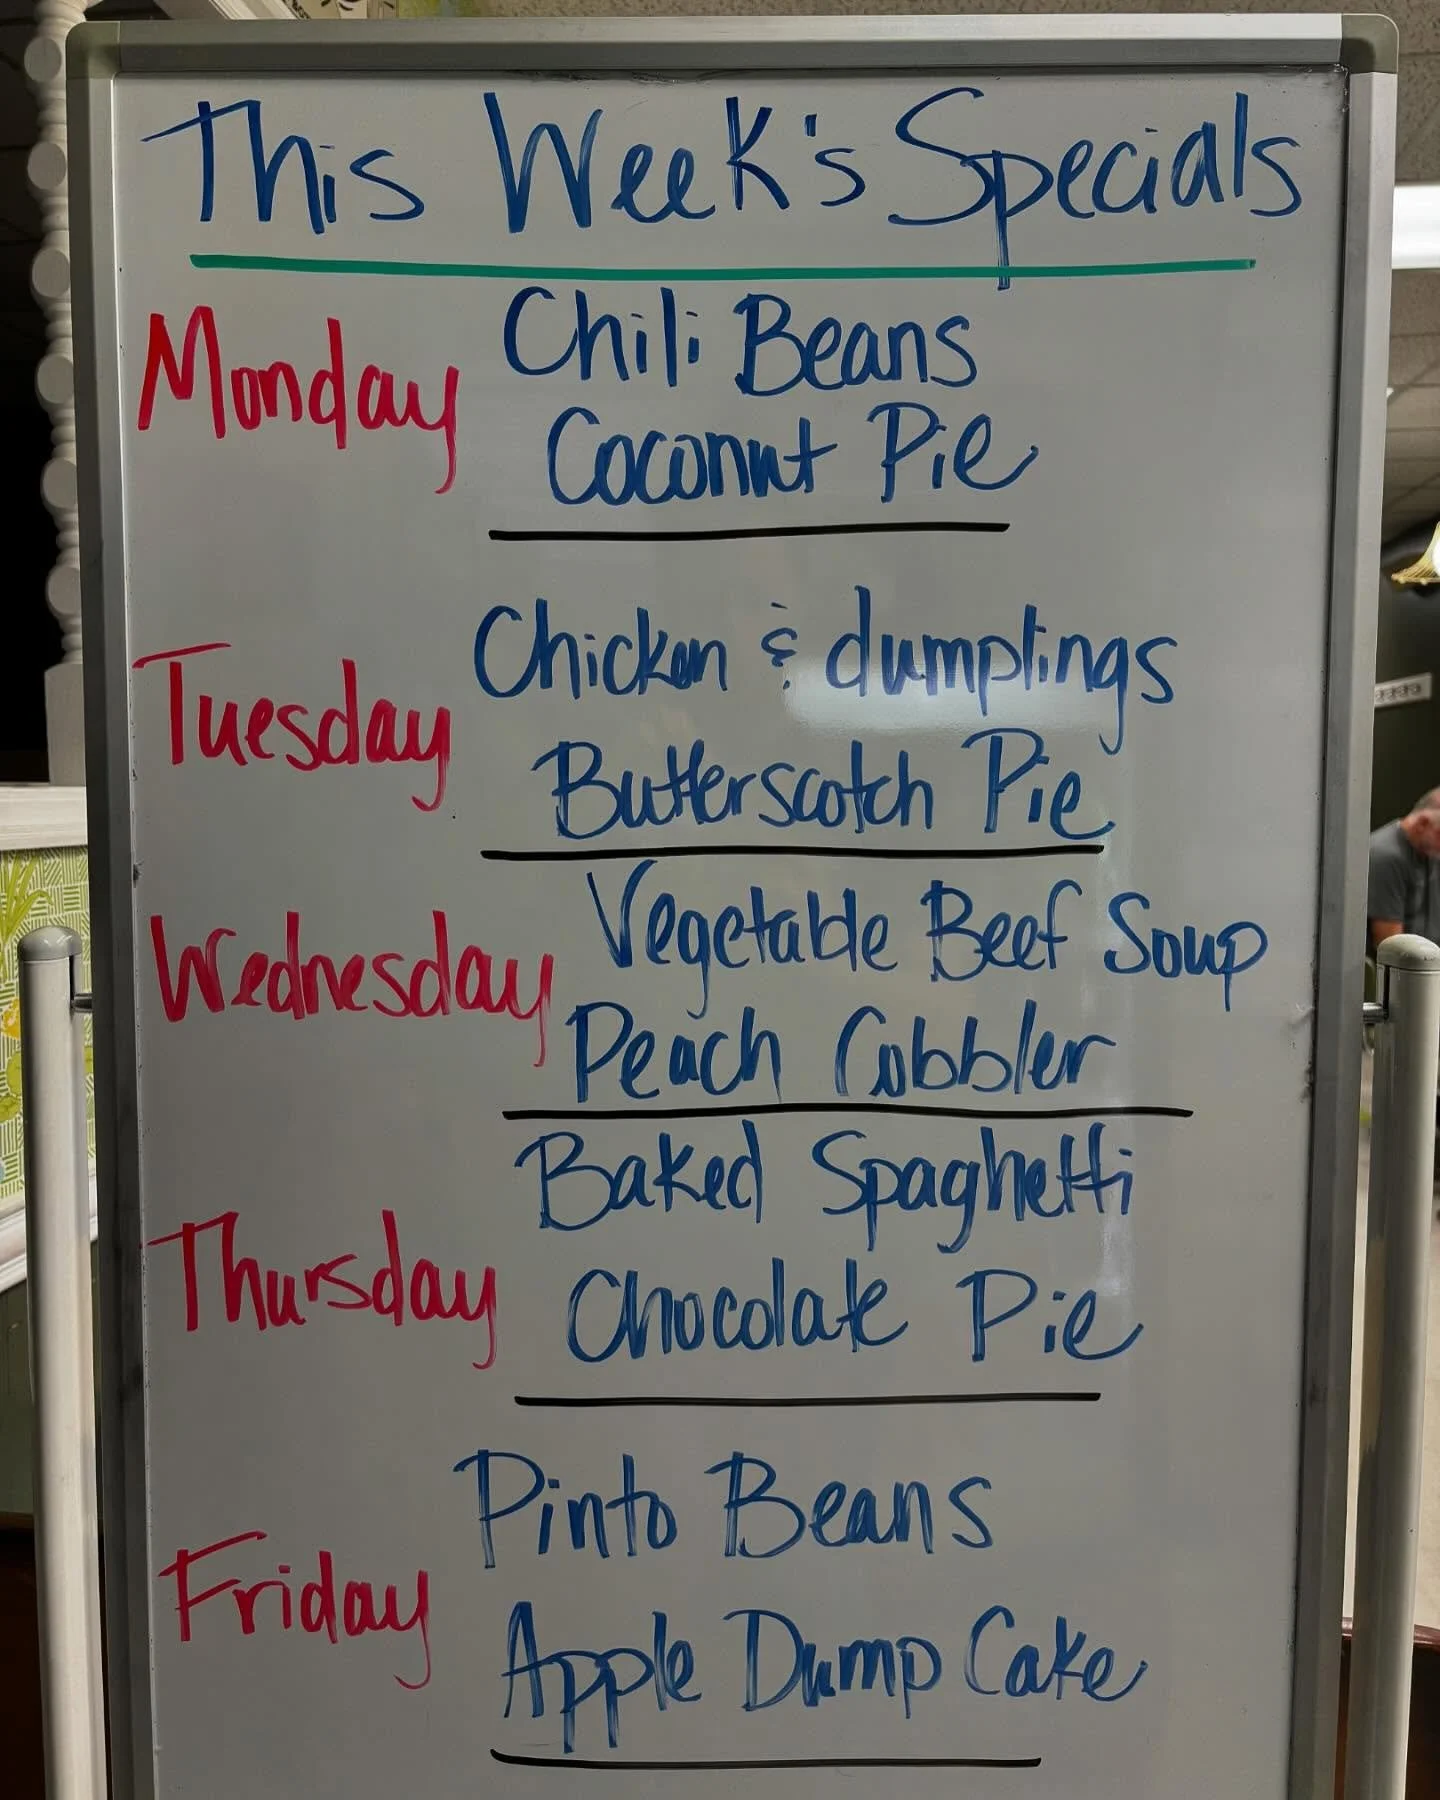 This Week's Specials
Monday
Chili Beans
Coconut Pie
Tuesday
Chicken & dumplings
Butterscotch Pie
Wednesday
Vegetable Beef Soup
Peach Cobbler
Thursday
Baked Spaghetti
Chocolate Pie
Friday
Pinto Beans
Apple Dump Cake